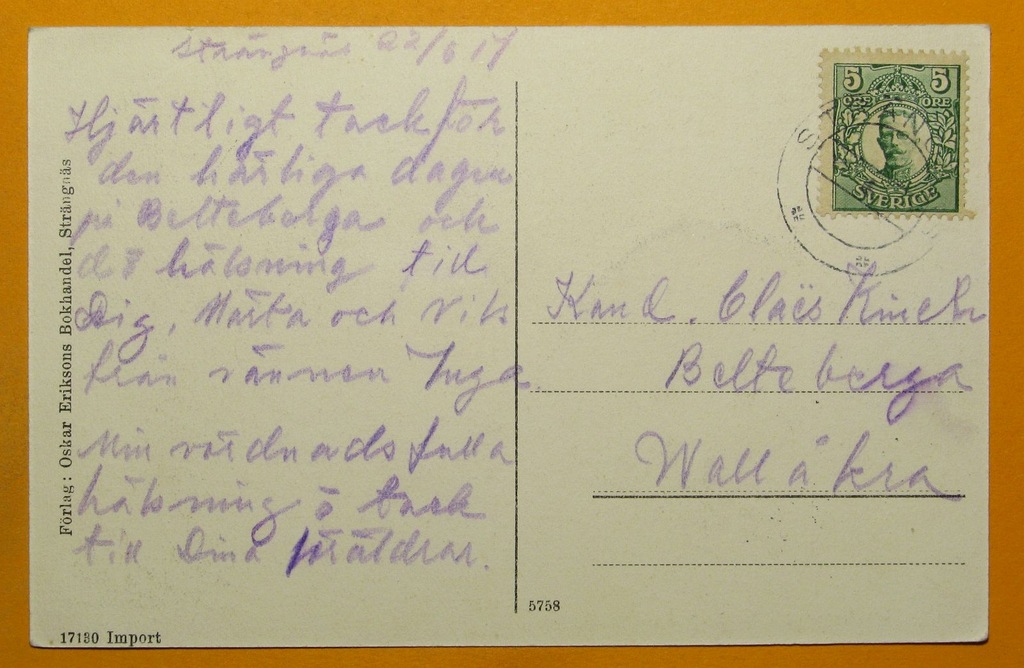 Strängnäs 22/6 17
Hjärtligt tack för
den härliga dagen
på Belteberga och
d:o hälsning till
Dig, Märta och Nils
från vännen Inga
Min vördnadsfulla
hälsning o tack
till Dina föräldrar.
Förlag: Oskar Eriksons Bokhandel, Strängnäs
17130 Import
5758
5 5
ÖRE ÖRE
SVERIGE
Kand. Claës
Belteberga
Wallåkra